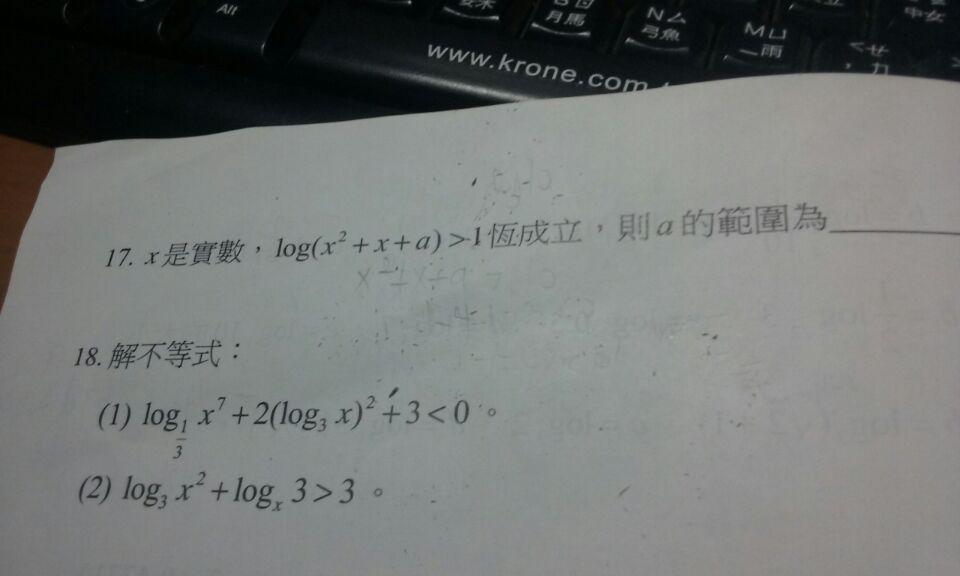 Alt
N ㄙ
弓魚
M ㄩ
一雨
www.krone.com
17. x是實數，log(x²+x+a)>1恆成立，則a的範圍為______
18. 解不等式：
(1) log_{1/3} x⁷+2(log₃ x)²+3<0。
(2) log₃ x²+logₓ 3>3。